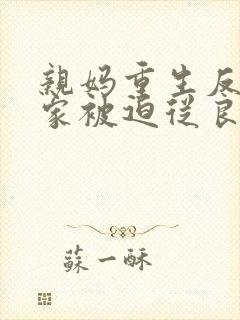 親妈重生反
家被迫從良
蘇一酥